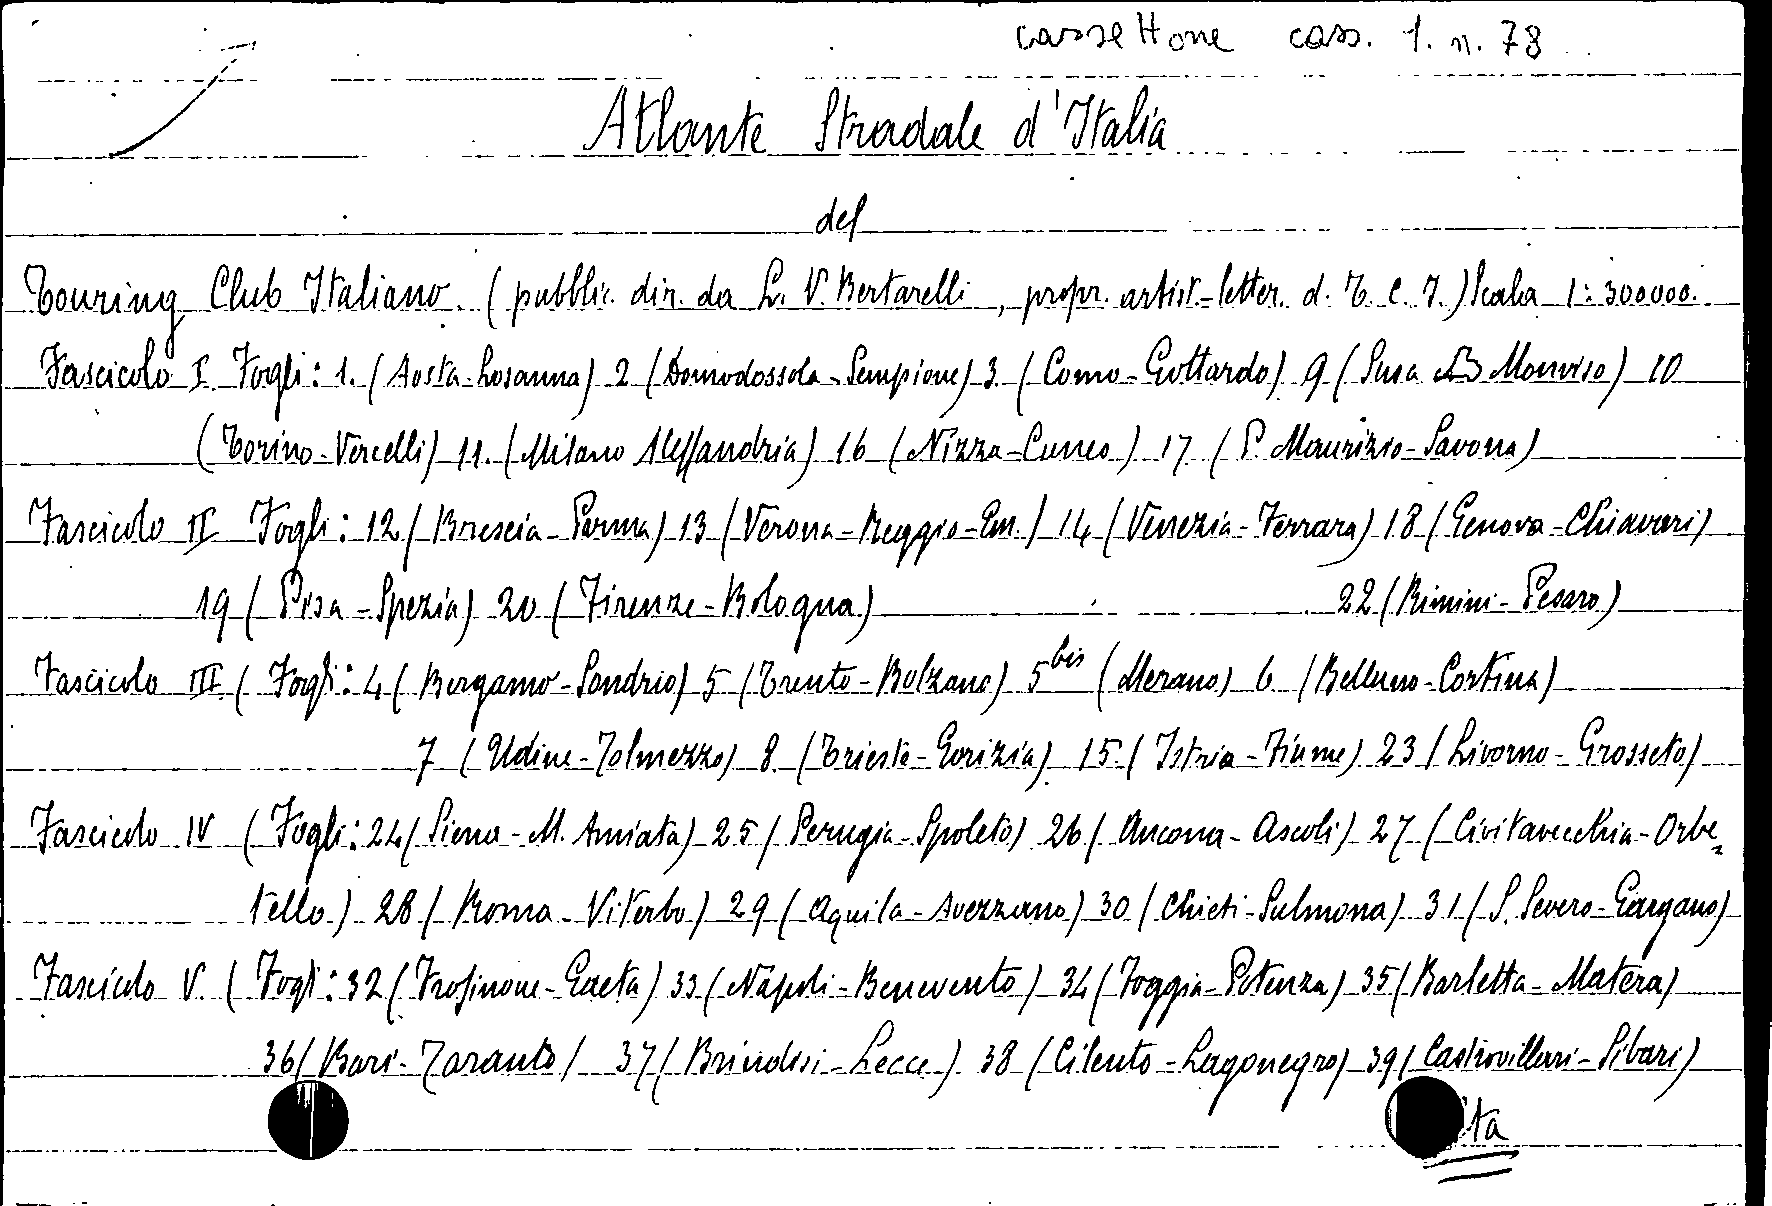 cassettone cass. 1. n. 78
Atlante Stradale d'Italia
del
Touring Club Italiano. (pubblic. dir. da L. V. Bertarelli, propr. artist.-letter. d. T. C. I.) Scala 1:300000.
Fascicolo I Fogli: 1. (Aosta-Losanna) 2 (Domodossola-Sempione) 3 (Como-Gottardo) 9 (Susa Monviso) 10
(Torino-Vercelli) 11. (Milano Alessandria) 16 (Nizza-Cuneo) 17 (P. Maurizio-Savona)
Fascicolo II Fogli: 12 (Brescia-Parma) 13 (Verona-Reggio-Em.) 14 (Venezia-Ferrara) 18 (Genova-Chiavari)
19 (Pisa-Spezia) 20 (Firenze-Bologna) 22 (Rimini-Pesaro)
Fascicolo III (Fogli: 4 (Bergamo-Sondrio) 5 (Trento-Bolzano) 5 bis (Merano) 6 (Belluno-Cortina)
7 (Udine-Tolmezzo) 8 (Trieste-Gorizia) 15 (Istria-Fiume) 23 (Livorno-Grosseto)
Fascicolo IV (Fogli: 24 (Siena-M. Amiata) 25 (Perugia-Spoleto) 26 (Ancona-Ascoli) 27 (Civitavecchia-Orbe=
tello) 28 (Roma-Viterbo) 29 (Aquila-Avezzano) 30 (Chieti-Sulmona) 31 (S. Severo-Gargano)
Fascicolo V. (Fogli: 32 (Frosinone-Gaeta) 33 (Napoli-Benevento) 34 (Foggia-Potenza) 35 (Barletta-Matera)
36 (Bari-Taranto) 37 (Brindisi-Lecce) 38 (Cilento-Lagonegro) 39 (Castrovillari-Sibari)